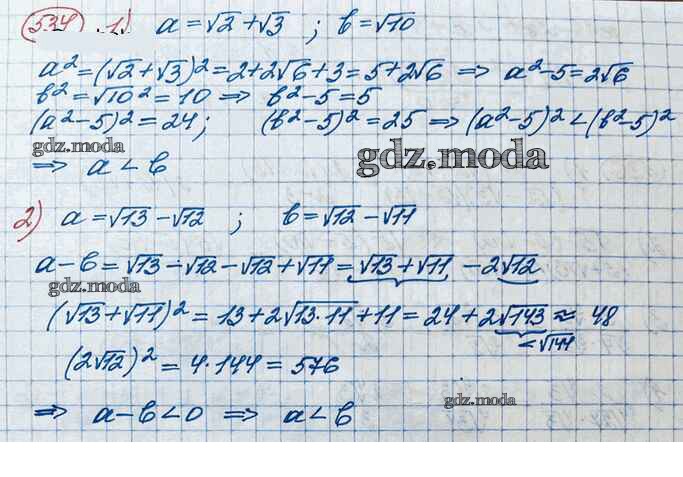 534 1) a = √2 + √3 ; b = √10
a² = (√2 + √3)² = 2 + 2√6 + 3 = 5 + 2√6 ⇒ a² - 5 = 2√6
b² = √10² = 10 ⇒ b² - 5 = 5
(a² - 5)² = 24; (b² - 5)² = 25 ⇒ (a² - 5)² < (b² - 5)²
gdz.moda
⇒ a < b
gdz.moda
2) a = √13 - √12 ; b = √12 - √11
a - b = √13 - √12 - √12 + √11 = √13 + √11 - 2√12
gdz.moda
(√13 + √11)² = 13 + 2√13·11 + 11 = 24 + 2√143 ≈ 48
< √144
(2√12)² = 4·144 = 576
⇒ a - b < 0 ⇒ a < b
gdz.moda